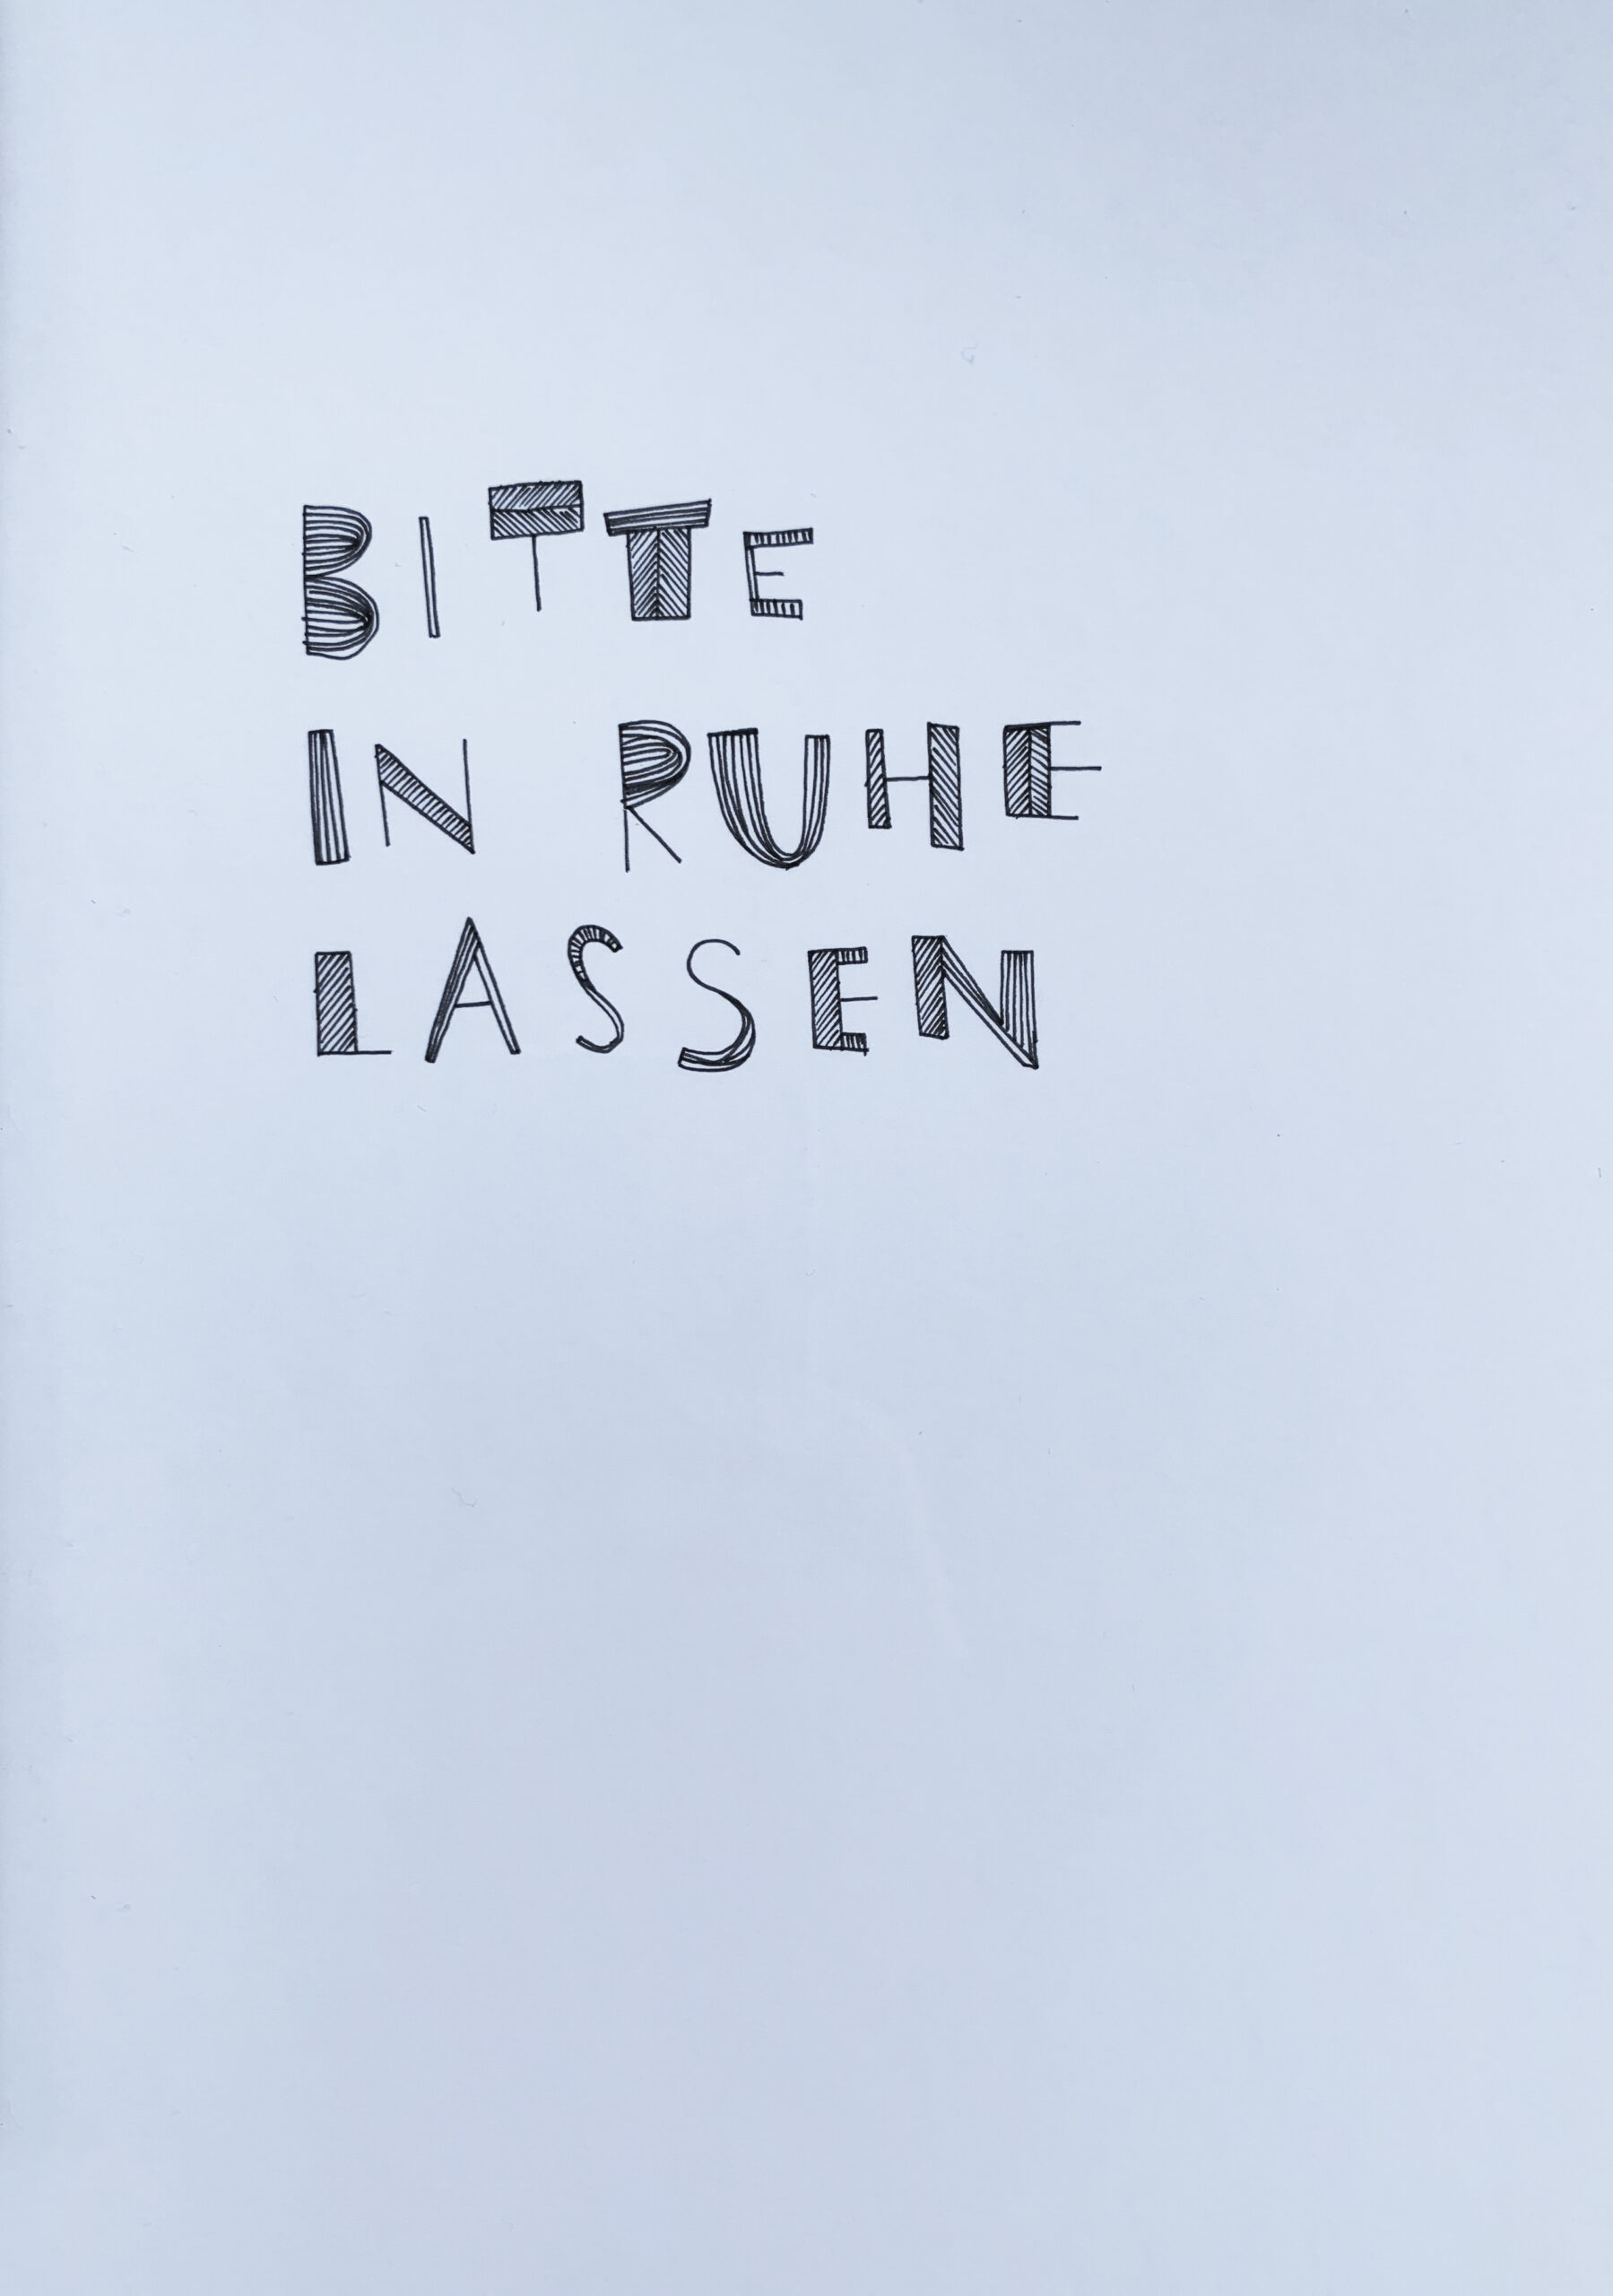 BITTE
IN RUHE
LASSEN